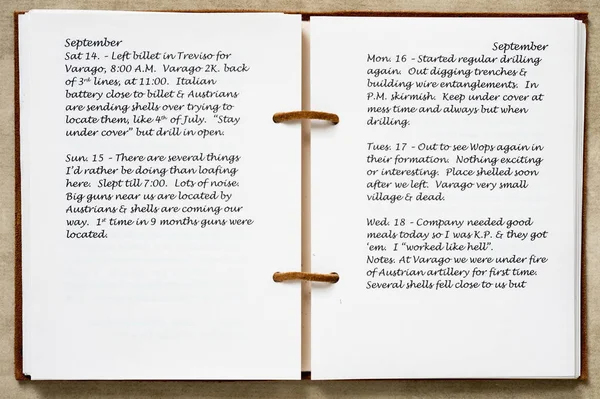 September
Sat 14. – Left billet in Treviso for
Varago, 8:00 A.M. Varago 2K. back
of 3rd lines, at 11:00. Italian
battery close to billet & Austrians
are sending shells over trying to
locate them, like 4th of July. "Stay
under cover" but drill in open.
Sun. 15 – There are several things
I'd rather be doing than loafing
here. Slept till 7:00. Lots of noise.
Big guns near us are located by
Austrians & shells are coming our
way. 1st time in 9 months guns were
located.
September
Mon. 16 – Started regular drilling
again. Out digging trenches &
building wire entanglements. In
P.M. skirmish. Keep under cover at
mess time and always but when
drilling.
Tues. 17 – Out to see Wops again in
their formation. Nothing exciting
or interesting. Place shelled soon
after we left. Varago very small
village & dead.
Wed. 18 – Company needed good
meals today so I was K.P. & they got
'em. I "worked like hell".
Notes. At Varago we were under fire
of Austrian artillery for first time.
Several shells fell close to us but